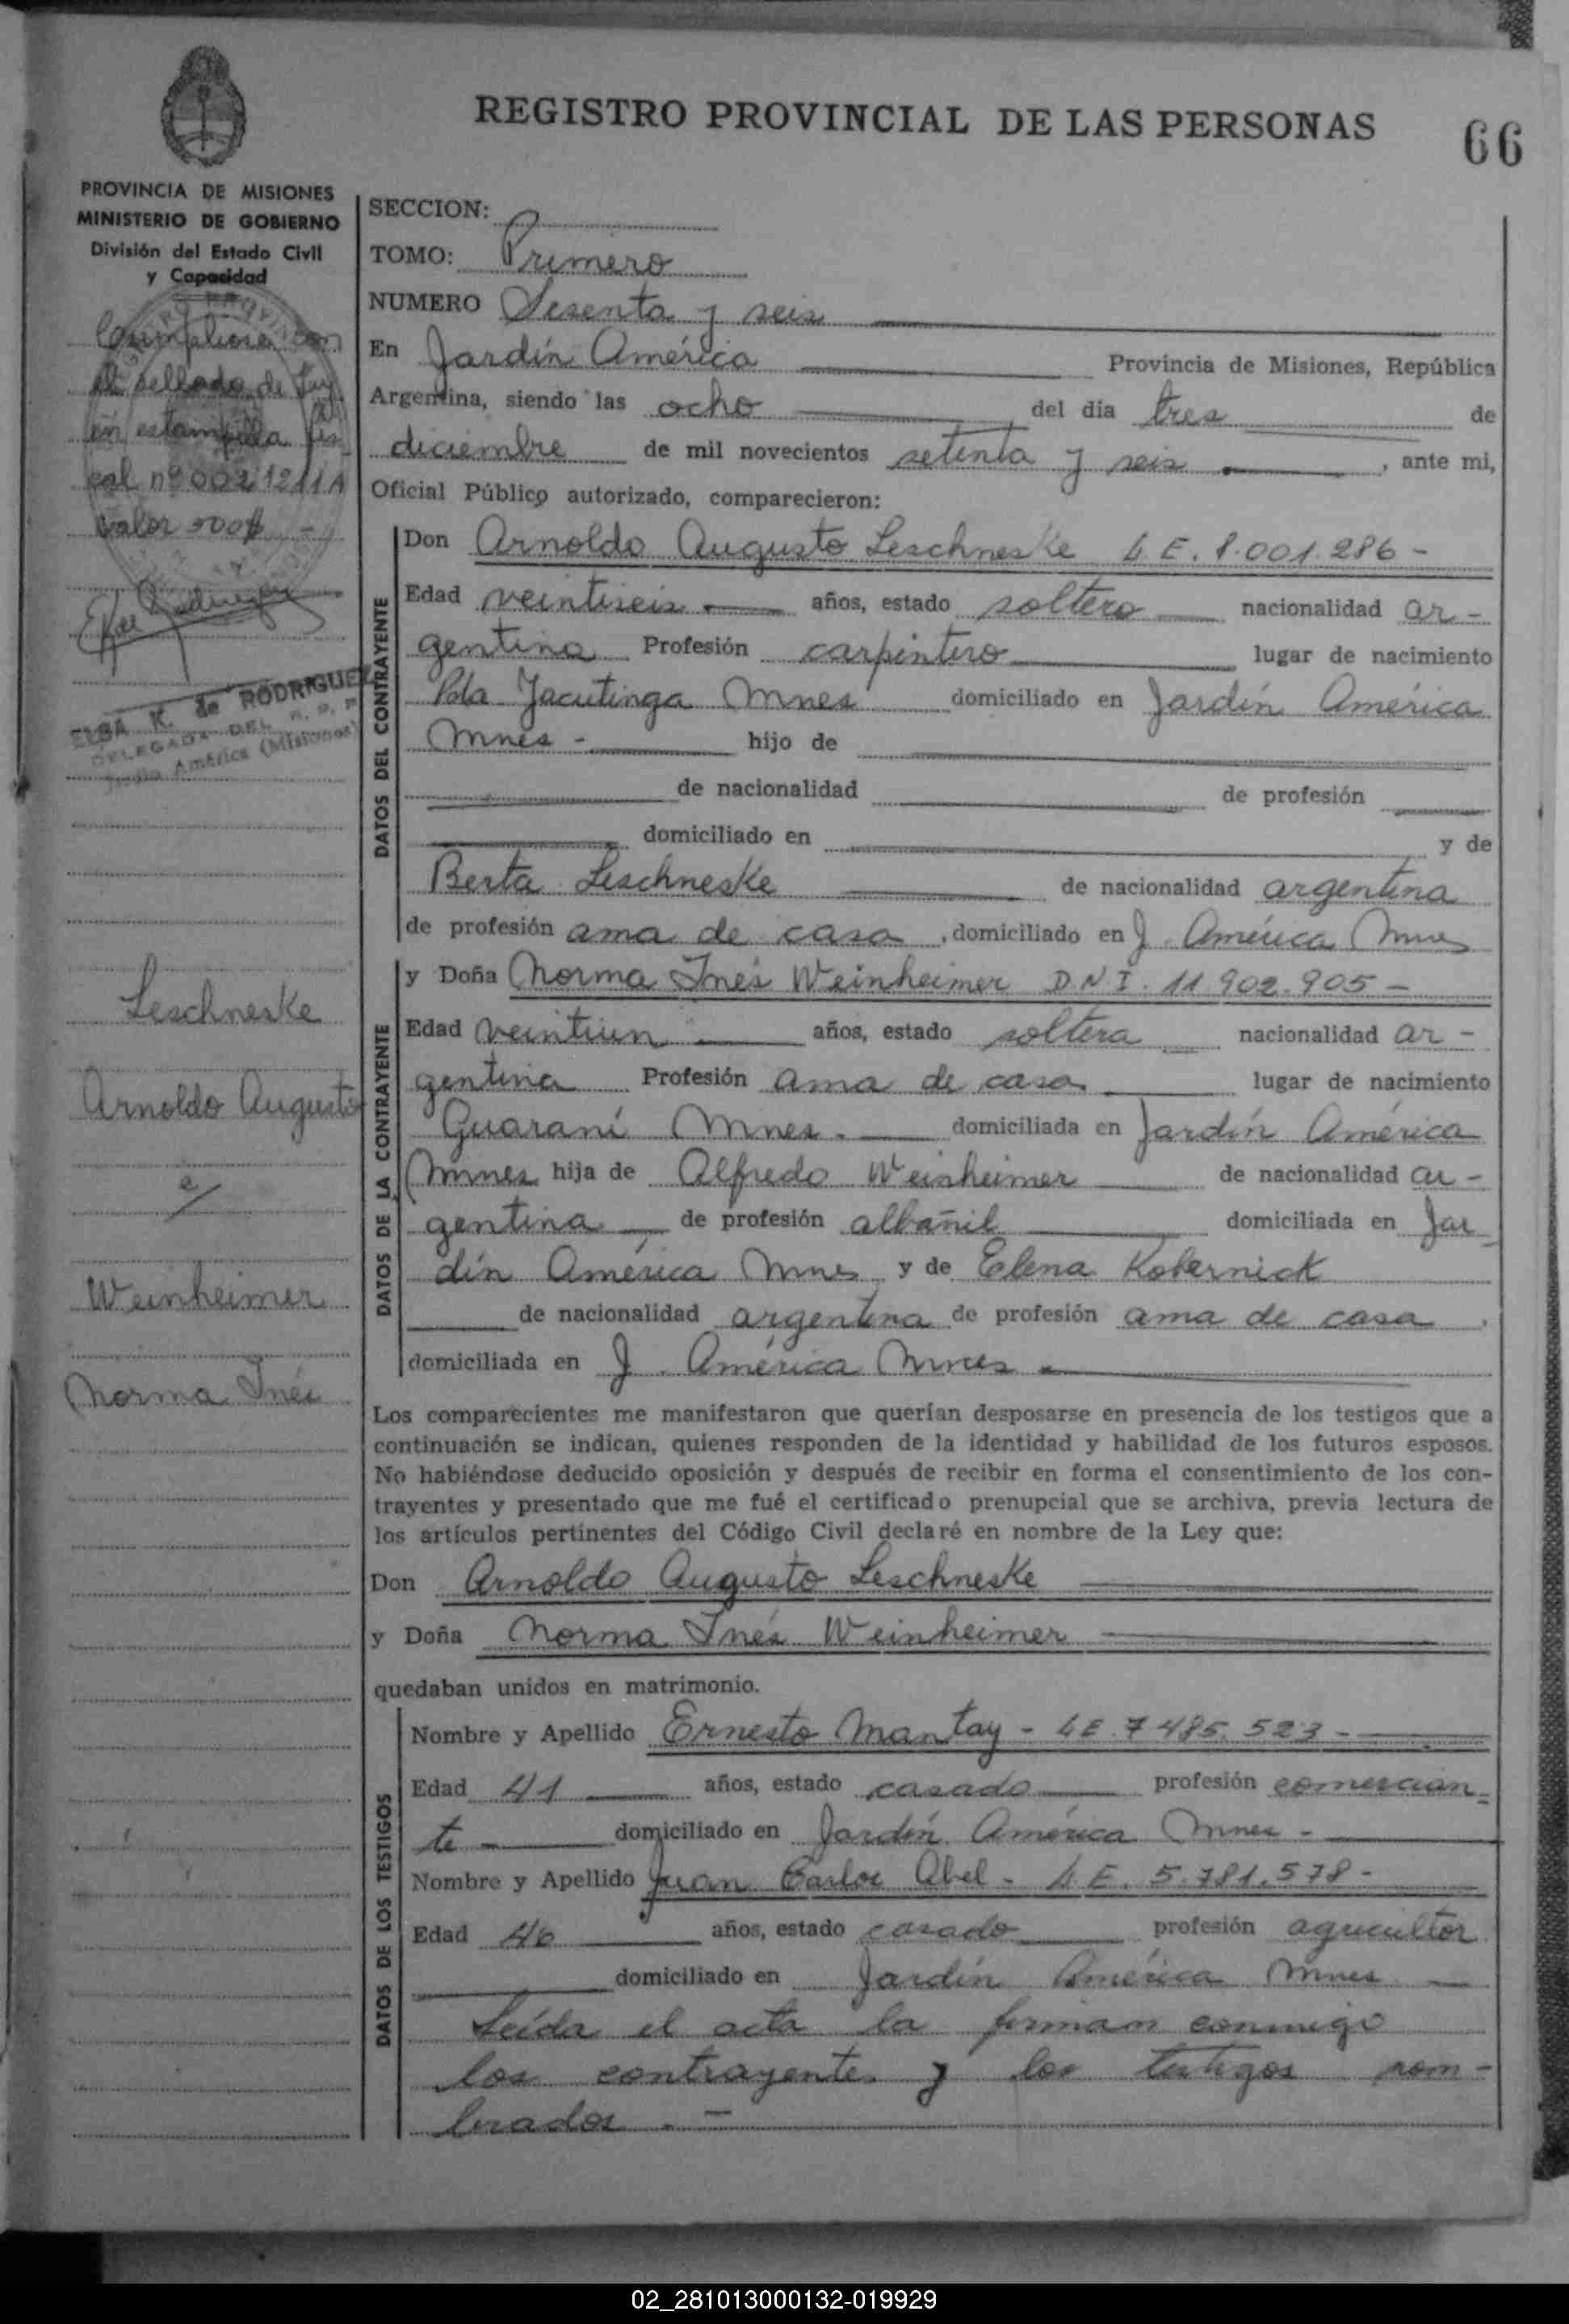 REGISTRO PROVINCIAL DE LAS PERSONAS
66
PROVINCIA DE MISIONES
MINISTERIO DE GOBIERNO
División del Estado Civil
y Capacidad
en estampilla fis
cal nº 0021211A
valor 500$ -
ELBA K. de RODRIGUEZ
DELEGADA DEL R. P. P.
Jardín América (Misiones)
Leschneske
Arnoldo Augusto
c/
Weinheimer
Norma Inés
SECCION:
TOMO: Primero
NUMERO Sesenta y seis
En Jardín América Provincia de Misiones, República
Argentina, siendo las ocho del día tres de
diciembre de mil novecientos setenta y seis, ante mi,
Oficial Público autorizado, comparecieron:
DATOS DEL CONTRAYENTE
Don Arnoldo Augusto Leschneske L.E. 8.001.286 -
Edad veintiseis años, estado soltero nacionalidad ar-
gentina Profesión carpintero lugar de nacimiento
Pda Yacutinga Mnes domiciliado en Jardín América
Mnes - hijo de
de nacionalidad de profesión
domiciliado en y de
Berta Leschneske de nacionalidad argentina
de profesión ama de casa, domiciliado en J. América Mnes
DATOS DE LA CONTRAYENTE
y Doña Norma Inés Weinheimer D N I. 11.902.905 -
Edad veintiun años, estado soltera nacionalidad ar-
gentina Profesión ama de casa lugar de nacimiento
Guaraní Mnes. domiciliada en Jardín América
Mnes hija de Alfredo Weinheimer de nacionalidad ar-
gentina de profesión albañil domiciliada en Jar
dín América Mnes y de Elena Kobernick
de nacionalidad argentina de profesión ama de casa,
domiciliada en J. América Mnes
Los comparecientes me manifestaron que querían desposarse en presencia de los testigos que a
continuación se indican, quienes responden de la identidad y habilidad de los futuros esposos.
No habiéndose deducido oposición y después de recibir en forma el consentimiento de los con-
trayentes y presentado que me fué el certificado prenupcial que se archiva, previa lectura de
los artículos pertinentes del Código Civil declaré en nombre de la Ley que:
Don Arnoldo Augusto Leschneske
y Doña Norma Inés Weinheimer
quedaban unidos en matrimonio.
DATOS DE LOS TESTIGOS
Nombre y Apellido Ernesto Mantay - L E. 7 485. 523 -
Edad 41 años, estado casado profesión comercian-
te domiciliado en Jardín América Mnes -
Nombre y Apellido Juan Carlos Abel - L. E. 5.781.578 -
Edad 46 años, estado casado profesión agricultor
domiciliado en Jardín América Mnes
Leída el acta la firman conmigo
los contrayentes y los testigos nom-
brados. -
02_281013000132-019929